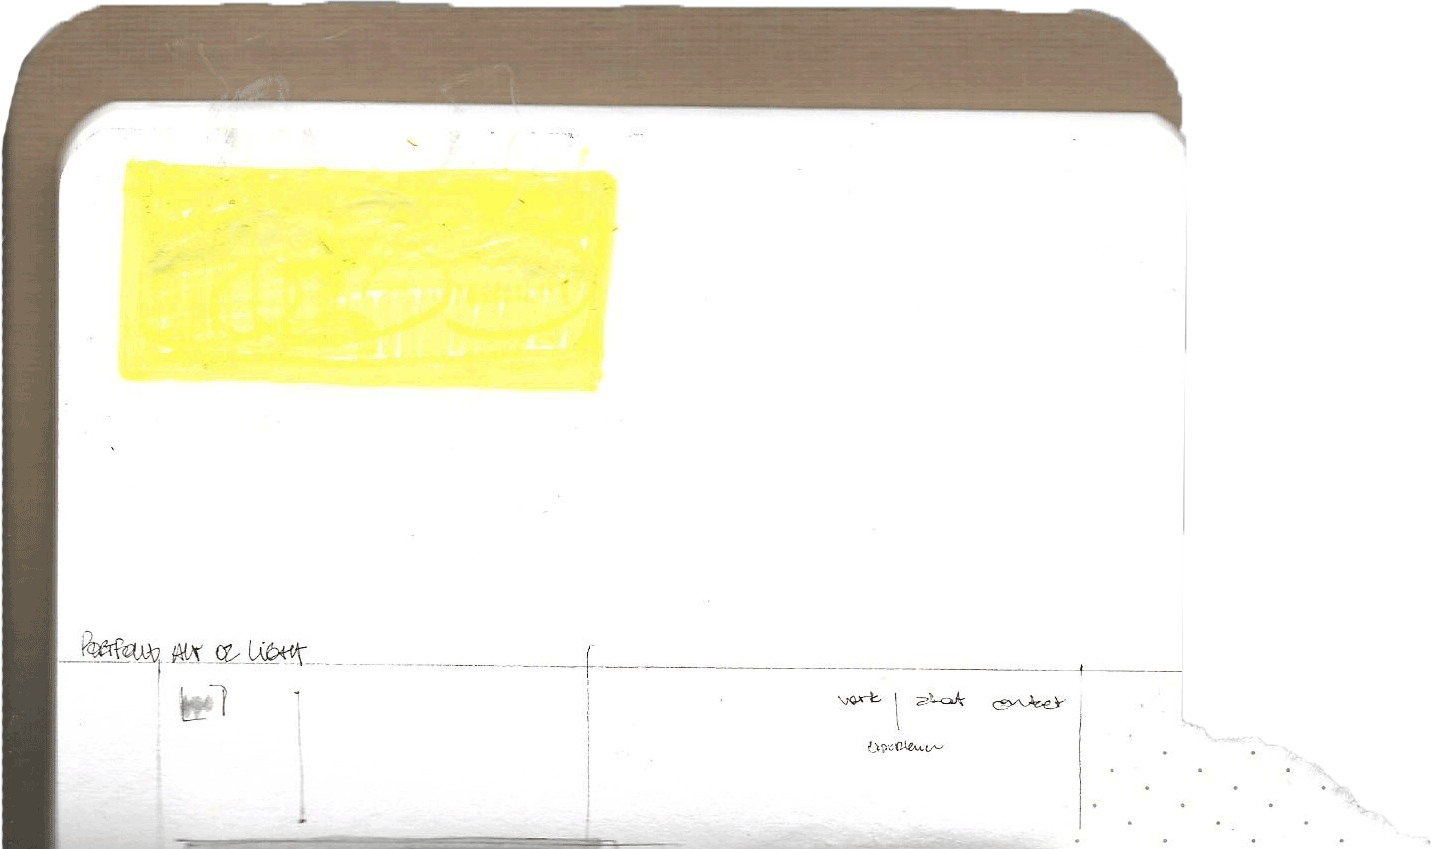 PORTFOLIO ALT 02 LIGHT
work | about contact
experience